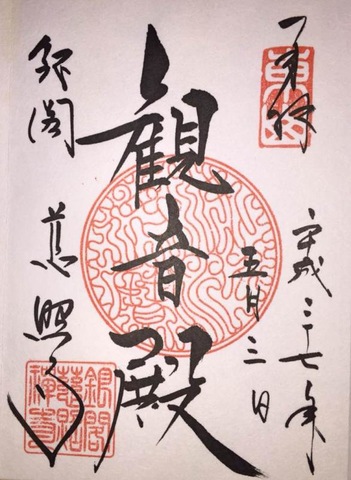 奉拝
東山
平成二十七年
五月三日
観音殿
銀閣 慈照寺
銀閣
慈照
禅寺